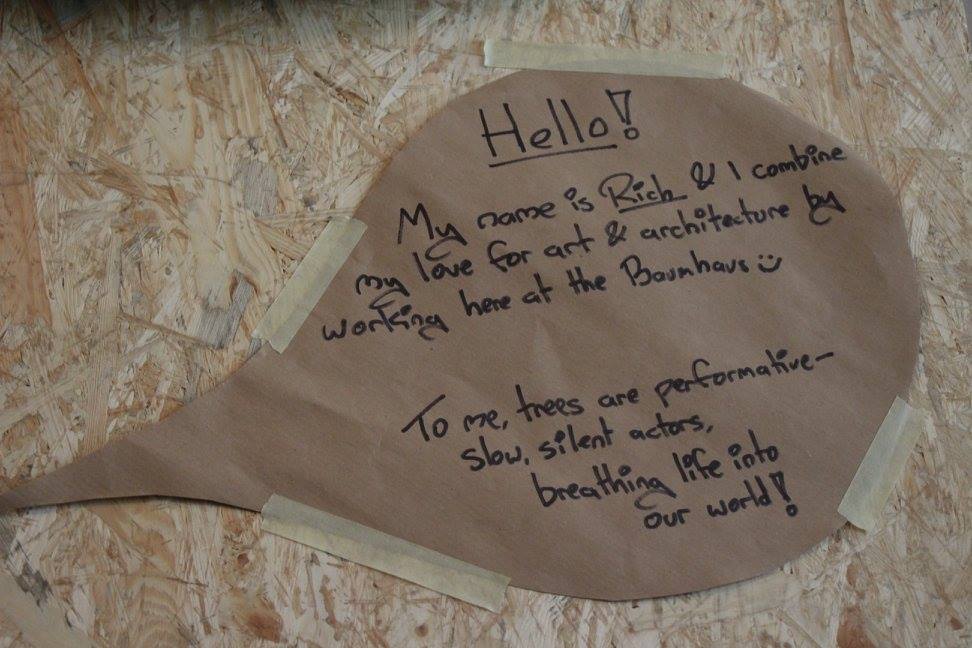 Hello!
My name is Rich & I combine
my love for art & architecture by
working here at the Baumhaus :)
To me, trees are performative—
slow, silent actors,
breathing life into
our world!